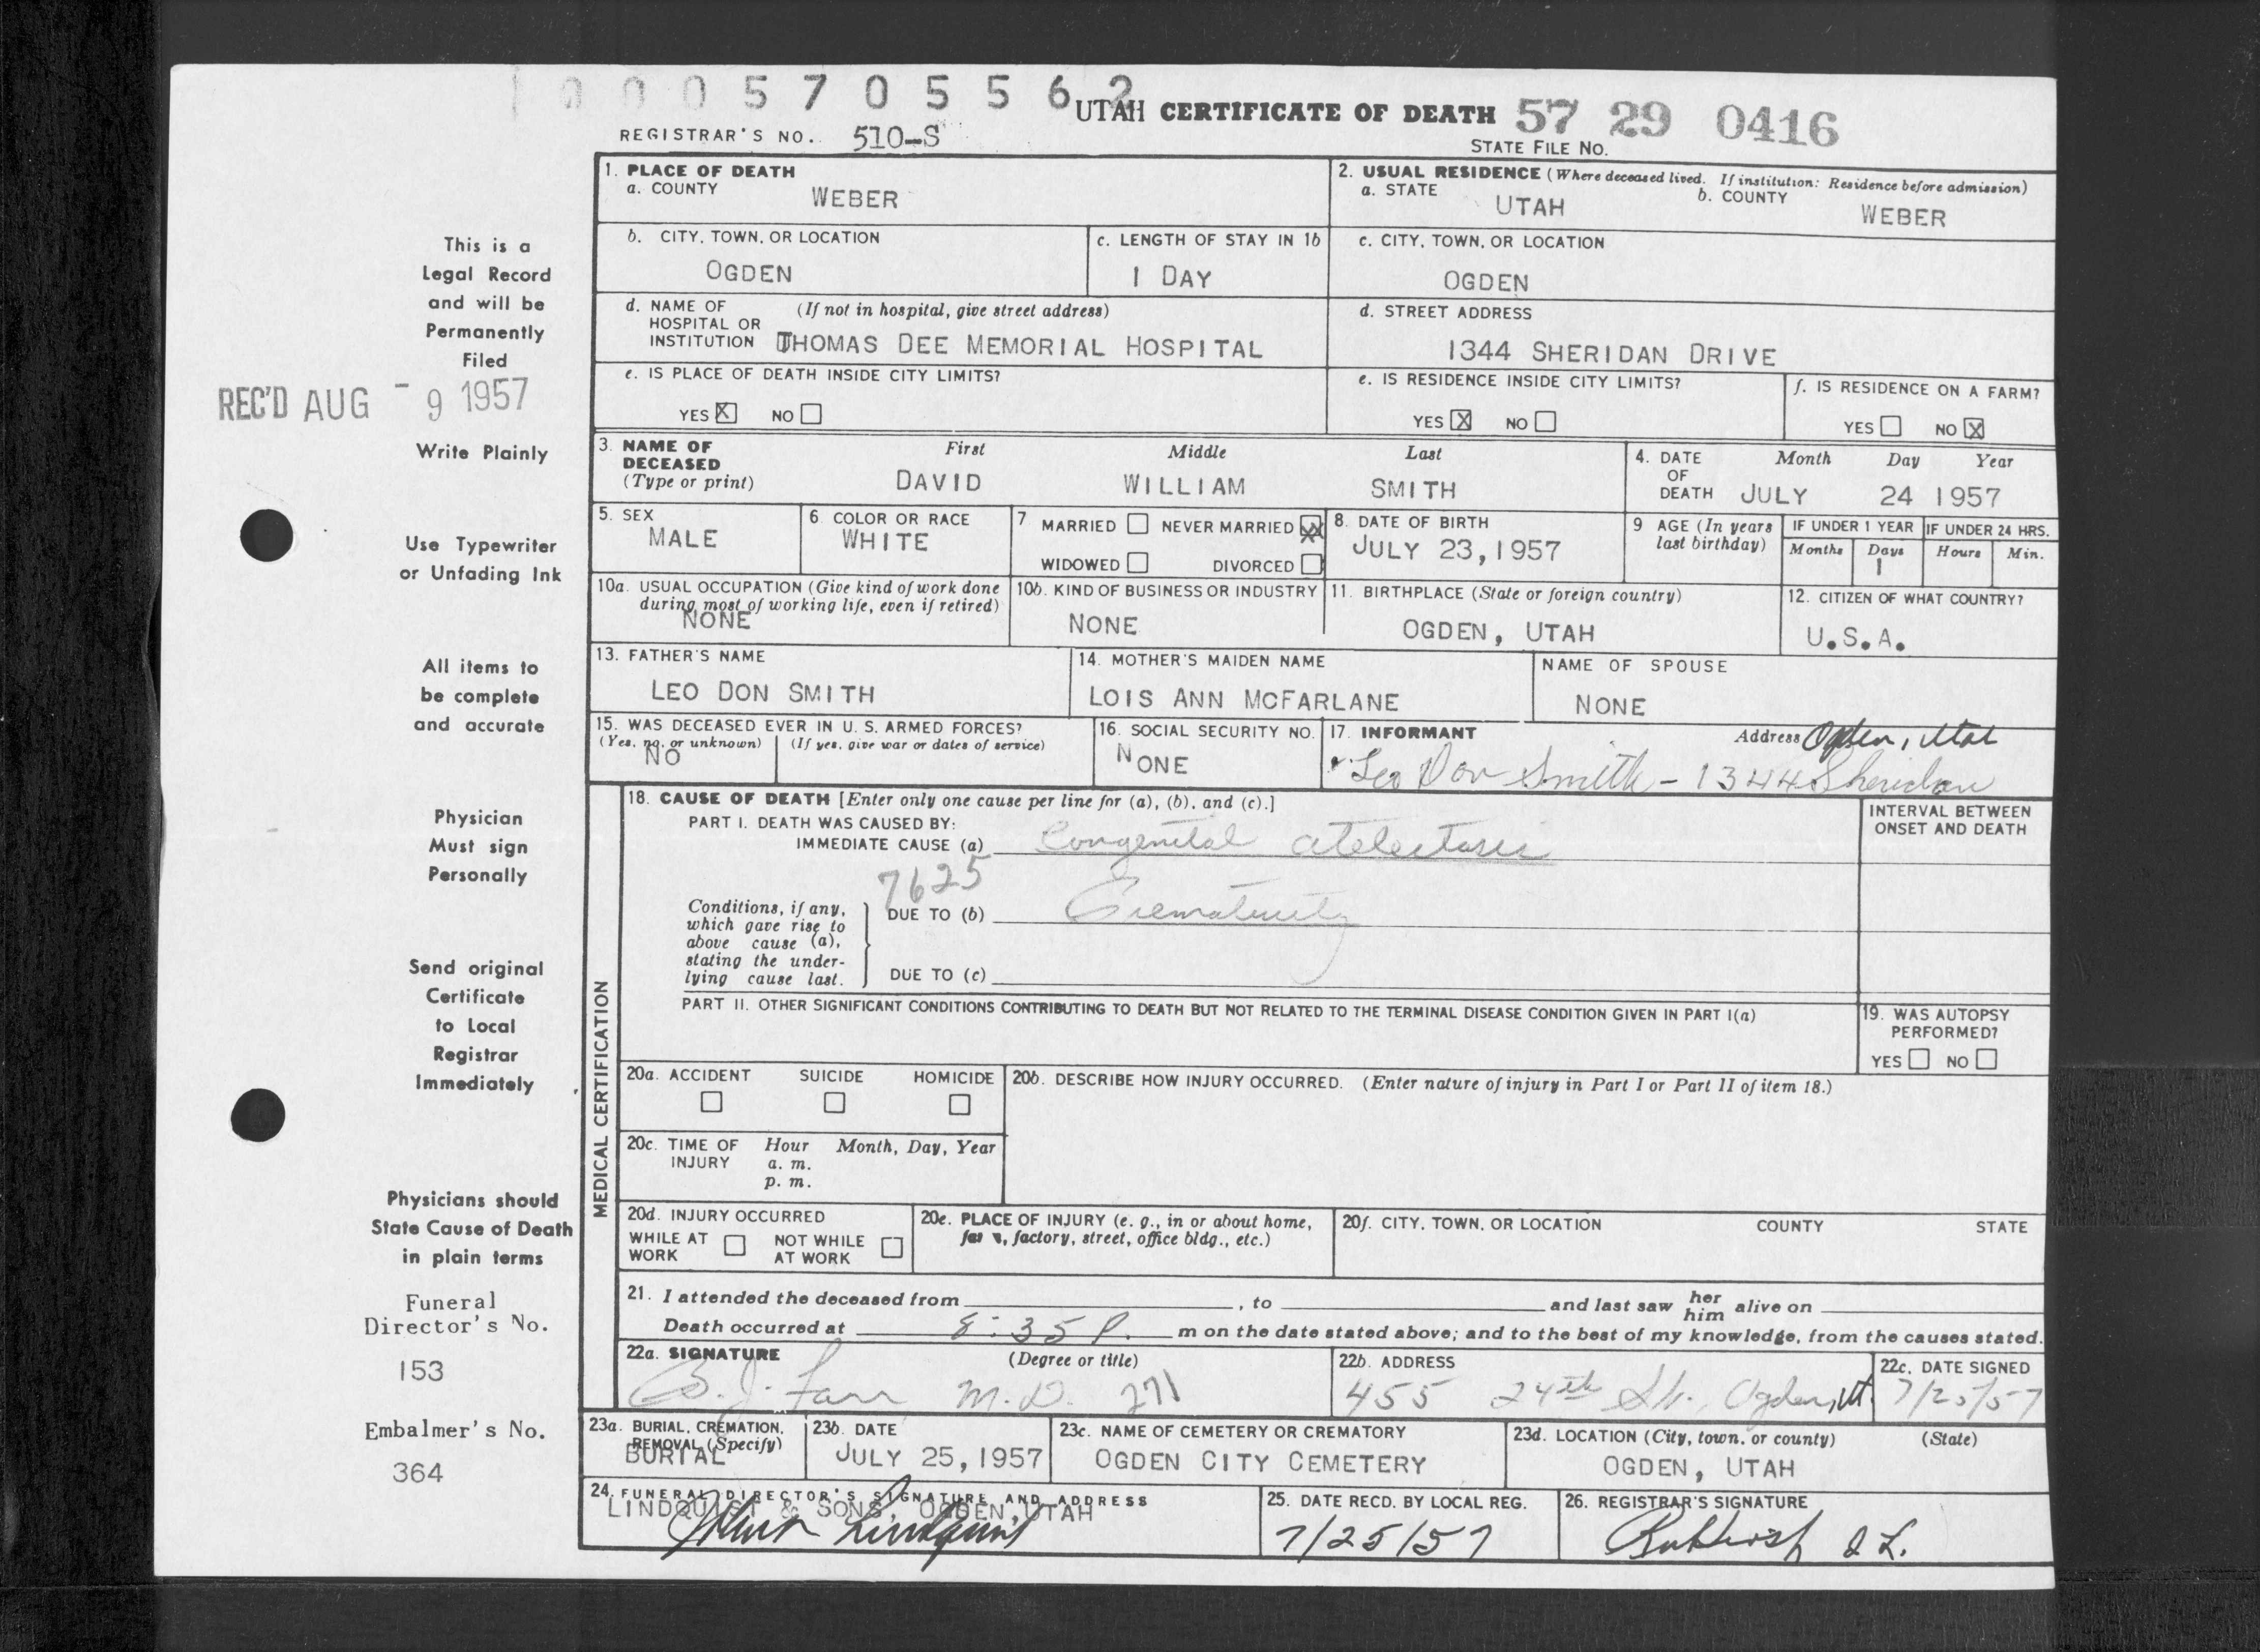 0 0 0 5 7 0 5 5 6 2
UTAH CERTIFICATE OF DEATH 57 29 0416
REGISTRAR'S NO. 510-S
STATE FILE NO.
1. PLACE OF DEATH
a. COUNTY WEBER
2. USUAL RESIDENCE (Where deceased lived. If institution: Residence before admission)
a. STATE UTAH b. COUNTY WEBER
b. CITY, TOWN, OR LOCATION OGDEN
c. LENGTH OF STAY IN 1b 1 DAY
c. CITY, TOWN, OR LOCATION OGDEN
d. NAME OF HOSPITAL OR INSTITUTION (If not in hospital, give street address) THOMAS DEE MEMORIAL HOSPITAL
d. STREET ADDRESS 1344 SHERIDAN DRIVE
e. IS PLACE OF DEATH INSIDE CITY LIMITS?
YES X NO
e. IS RESIDENCE INSIDE CITY LIMITS?
YES X NO
f. IS RESIDENCE ON A FARM?
YES NO X
3. NAME OF DECEASED (Type or print)
First Middle Last
DAVID WILLIAM SMITH
4. DATE OF DEATH Month Day Year
JULY 24 1957
5. SEX MALE
6 COLOR OR RACE WHITE
7 MARRIED NEVER MARRIED XX
WIDOWED DIVORCED
8. DATE OF BIRTH JULY 23, 1957
9 AGE (In years last birthday)
IF UNDER 1 YEAR IF UNDER 24 HRS.
Months Days Hours Min.
1
10a. USUAL OCCUPATION (Give kind of work done during most of working life, even if retired) NONE
10b. KIND OF BUSINESS OR INDUSTRY NONE
11. BIRTHPLACE (State or foreign country) OGDEN, UTAH
12. CITIZEN OF WHAT COUNTRY? U.S.A.
13. FATHER'S NAME LEO DON SMITH
14. MOTHER'S MAIDEN NAME LOIS ANN MCFARLANE
NAME OF SPOUSE NONE
15. WAS DECEASED EVER IN U. S. ARMED FORCES?
(Yes, no, or unknown) (If yes, give war or dates of service)
NO
16. SOCIAL SECURITY NO. NONE
17. INFORMANT Address Ogden, Utah
Leo Don Smith - 1344 Sheridan
MEDICAL CERTIFICATION
18. CAUSE OF DEATH [Enter only one cause per line for (a), (b), and (c).]
PART I. DEATH WAS CAUSED BY:
IMMEDIATE CAUSE (a) Congenital atelectasis
7625
Conditions, if any, which gave rise to above cause (a), stating the underlying cause last.
DUE TO (b) Prematurity
DUE TO (c)
INTERVAL BETWEEN ONSET AND DEATH
PART II. OTHER SIGNIFICANT CONDITIONS CONTRIBUTING TO DEATH BUT NOT RELATED TO THE TERMINAL DISEASE CONDITION GIVEN IN PART I(a)
19. WAS AUTOPSY PERFORMED?
YES NO
20a. ACCIDENT SUICIDE HOMICIDE
20b. DESCRIBE HOW INJURY OCCURRED. (Enter nature of injury in Part I or Part II of item 18.)
20c. TIME OF INJURY Hour Month, Day, Year
a. m.
p. m.
20d. INJURY OCCURRED
WHILE AT WORK NOT WHILE AT WORK
20e. PLACE OF INJURY (e. g., in or about home, factory, street, office bldg., etc.)
20f. CITY, TOWN, OR LOCATION COUNTY STATE
21. I attended the deceased from , to and last saw her him alive on
Death occurred at 8:35 P. m on the date stated above; and to the best of my knowledge, from the causes stated.
22a. SIGNATURE (Degree or title)
Farr M.D. 271
22b. ADDRESS 455 24th St., Ogden, Ut.
22c. DATE SIGNED 7/25/57
23a. BURIAL, CREMATION, REMOVAL (Specify) BURIAL
23b. DATE JULY 25, 1957
23c. NAME OF CEMETERY OR CREMATORY OGDEN CITY CEMETERY
23d. LOCATION (City, town, or county) (State) OGDEN, UTAH
24. FUNERAL DIRECTOR'S SIGNATURE AND ADDRESS
LINDQUIST & SONS, OGDEN, UTAH
Lindquist
25. DATE RECD. BY LOCAL REG. 7/25/57
26. REGISTRAR'S SIGNATURE
This is a
Legal Record
and will be
Permanently
Filed
REC'D AUG - 9 1957
Write Plainly
Use Typewriter
or Unfading Ink
All items to
be complete
and accurate
Physician
Must sign
Personally
Send original
Certificate
to Local
Registrar
Immediately
Physicians should
State Cause of Death
in plain terms
Funeral
Director's No.
153
Embalmer's No.
364